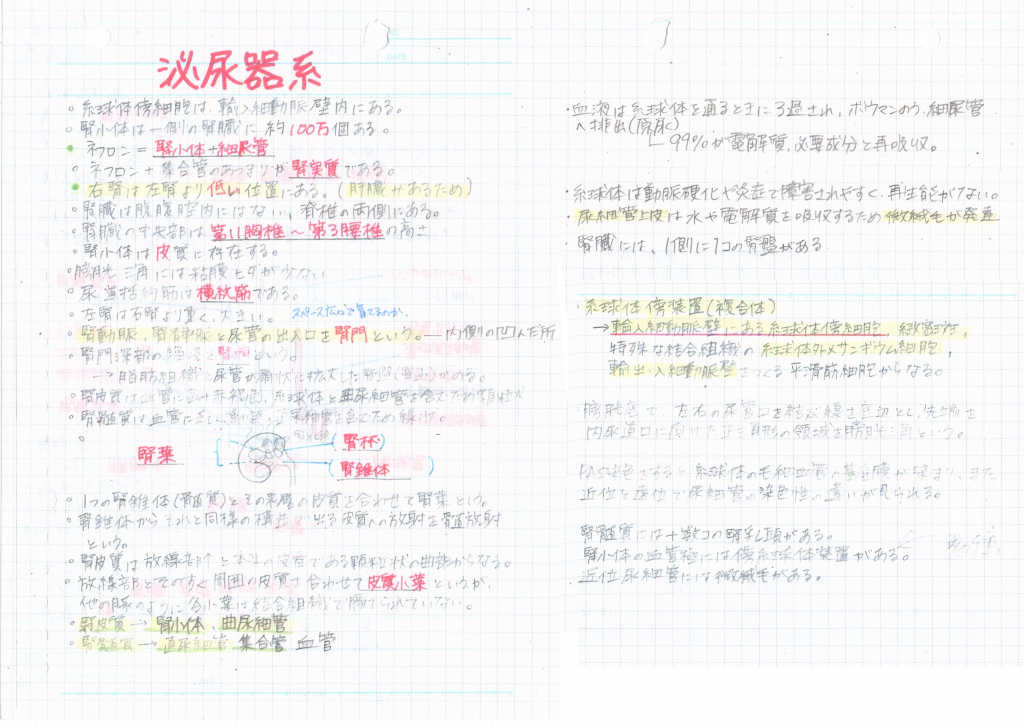 泌尿器系
。糸球体傍細胞は、輸入細動脈壁内にある。
。腎小体は一個の腎臓に約100万個ある。
。ネフロン = 腎小体+細尿管
。ネフロン+集合管のあつまりが腎実質である。
。右腎は左腎より低い位置にある。(肝臓があるため)
。腎臓は腹腔内にはない、脊椎の両側にある。
。腎臓の中央部は第11胸椎~第3腰椎の高さ
。腎小体は皮質に存在する。
。膀胱三角には粘膜ヒダが少ない
。尿道括約筋は横紋筋である。
。左腎は右腎より重く、大きい。 スペース広いので育てるのか。
。腎動脈、腎静脈と尿管の出入口を腎門という。― 内側の凹んだ所
。腎門深部の
→ 脂肪組織と尿管が
。腎皮質は 糸球体と曲尿細管を含むため顆粒状
。腎髄質は血管に を含むため線状。
。
腎葉
腎杯
腎錐体
。1つの腎錐体(髄質)とその の皮質を合わせて腎葉という。
。腎錐体からそれと同様の構造で出る皮質への放射を髄放射
という。
。腎皮質は放線部 である顆粒状の曲部からなる。
。放線部とそのすぐ周囲の皮質を合わせて皮質小葉というが、
他の脈のように各小葉は結合組織で隔てられていない。
。腎皮質 → 腎小体、曲尿細管
。腎髄質 → 直尿細管 集合管 血管
・血液は糸球体を通るときにろ過され、ボウマンのう、細尿管
へ排出(原尿)
└ 99%が電解質、必要成分と再吸収。
・糸球体は動脈硬化や炎症で障害されやすく、再生能がない。
・尿細管上皮は水や電解質を吸収するため微絨毛が発達
・腎臓には、1側に1コの腎盤がある
・糸球体傍装置(複合体)
→輸入細動脈壁にある糸球体傍細胞、緻密斑、
特殊な結合組織の糸球体外メサンギウム細胞、
輸出・入細動脈壁をつくる平滑筋細胞からなる。
膀胱底で、左右の尿管口を結ぶ線を底辺とし、先端を
内尿道口に向けた正三角形の領域を膀胱三角という。
PAS染色をすると糸球体の毛細血管の基底膜が染まり、また
近位と遠位で尿細管の染色性の違いが見られる。
腎髄質には十数コの腎乳頭がある。
腎小体の血管極には傍糸球体装置がある。
近位尿細管には微絨毛がある。